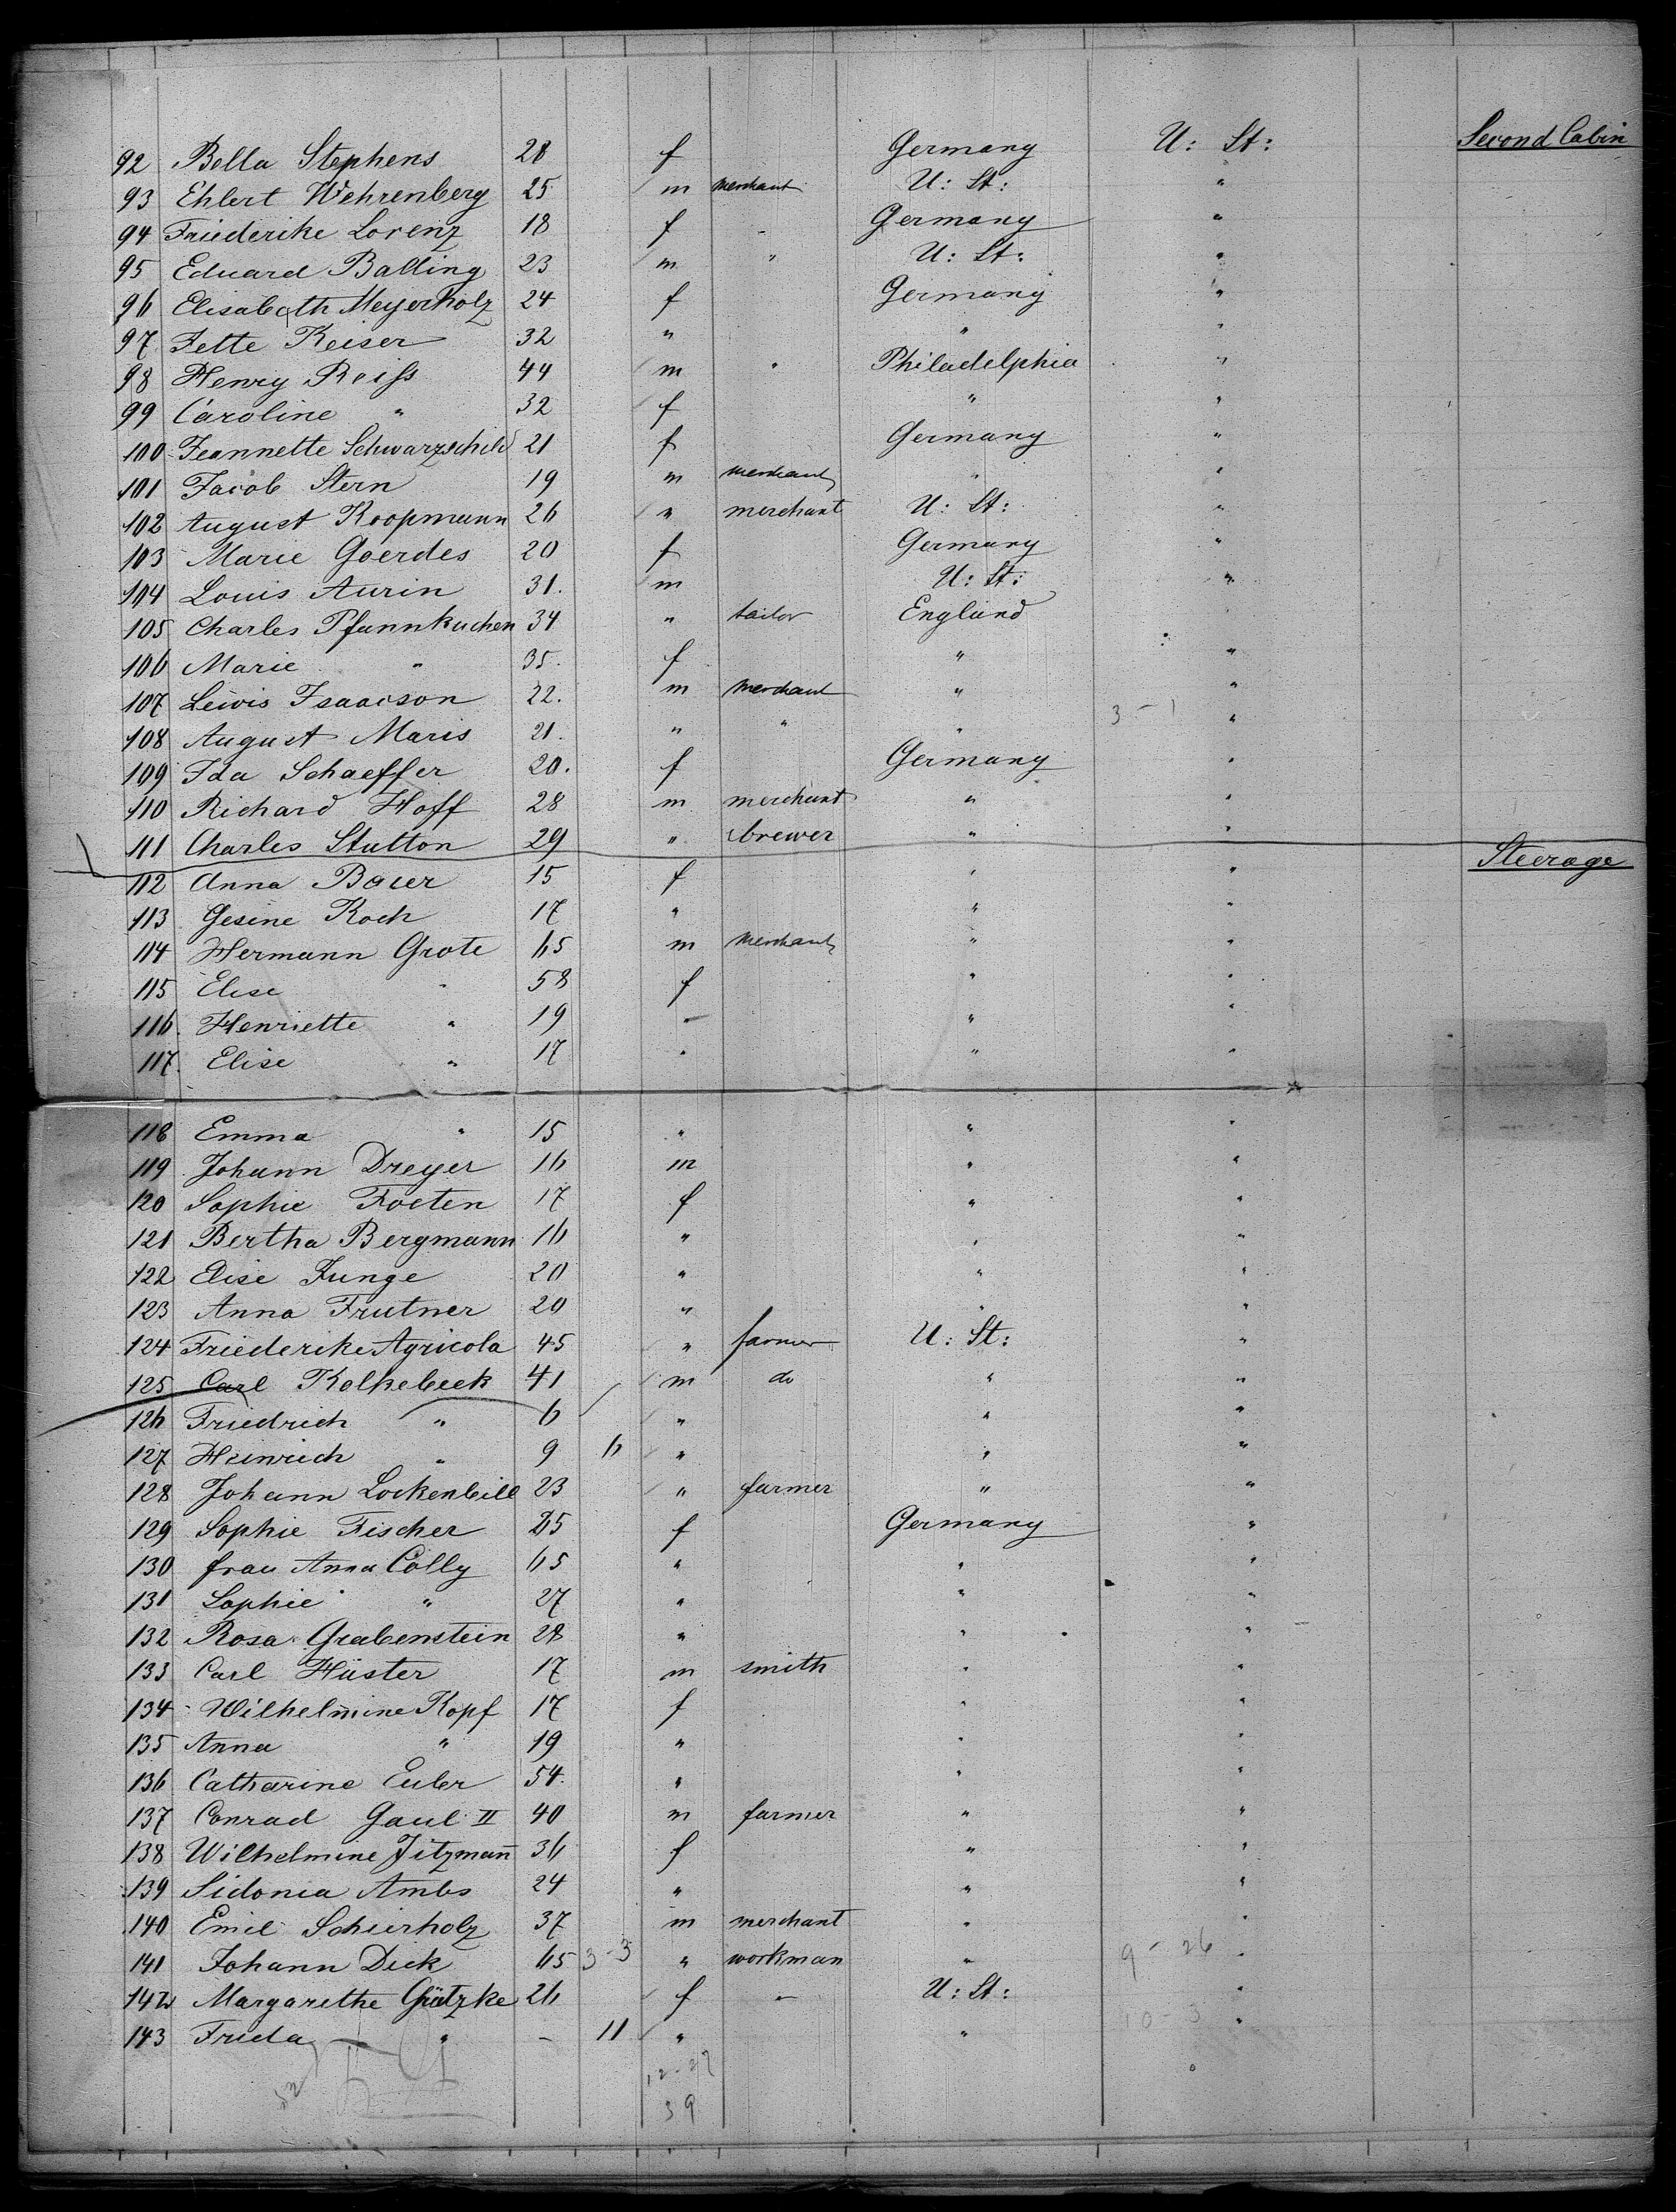 92 Bella Stephens 28 f Germany U: St: Second Cabin
93 Ehlert Wehrenberg 25 m merchant U: St: "
94 Friederike Lorenz 18 f - Germany "
95 Eduard Balling 23 m " U: St: "
96 Elisabeth Meyerholz 24 f Germany "
97 Jette Keiser 32 " " "
98 Henry Reiss 44 m " Philadelphia "
99 Caroline " 32 f " "
100 Jeannette Schwarzschild 21 f Germany "
101 Jacob Stern 19 m merchant " "
102 August Koopmann 26 " merchant U: St: "
103 Marie Goerdes 20 f Germany "
104 Louis Aurin 31. m U: St: "
105 Charles Pfannkuchen 34 " tailor England "
106 Marie " 35. f " "
107 Lewis Isaacson 22. m merchant " "
108 August Maris 21. " " " 3-1 "
109 Ida Schaeffer 20. f Germany "
110 Richard Hoff 28 m merchant " "
111 Charles Stutton 29 " brewer " "
112 Anna Bauer 15 f " " Steerage
113 Gesine Koch 17 " " "
114 Hermann Grote 65 m merchant " "
115 Elise " 58 f " "
116. Henriette " 19 " " "
117. Elise " 17 " " "
118 Emma " 15 " " "
119 Johann Dreyer 16 m " "
120 Sophie Foeten 17 f " "
121 Bertha Bergmann 16 " " "
122 Elise Junge 20 " " "
123 Anna Frutner 20 " " "
124 Friederike Agricola 45 " farmer U: St: "
125 Carl Kolkebeck 41 m do " "
126 Friedrich " 6 " " "
127 Heinrich " 9 6 " " "
128 Johann Lockenbill 23 " farmer " "
129 Sophie Fischer 25 f Germany "
130 frau Anna Colly 65 " " "
131 Sophie " 27 " " "
132 Rosa Grabenstein 28 " " "
133 Carl Hüster 17 m smith " "
134 Wilhelmine Kopf 17 f " "
135 Anna " 19 " " "
136 Catharine Euler 54. " " "
137 Conrad Gaul II 40 m farmer " "
138 Wilhelmine Fitzmañ 36 f " "
139 Sidonia Ambs 24 " " "
140 Emil Schierholz 37 m merchant " "
141 Johann Dick 65 3-3 " workman " 9-26 "
142 Margarethe Gützke 26 f - U: St: "
143 Frida " - 11 " " 10-3 "
12-27
39